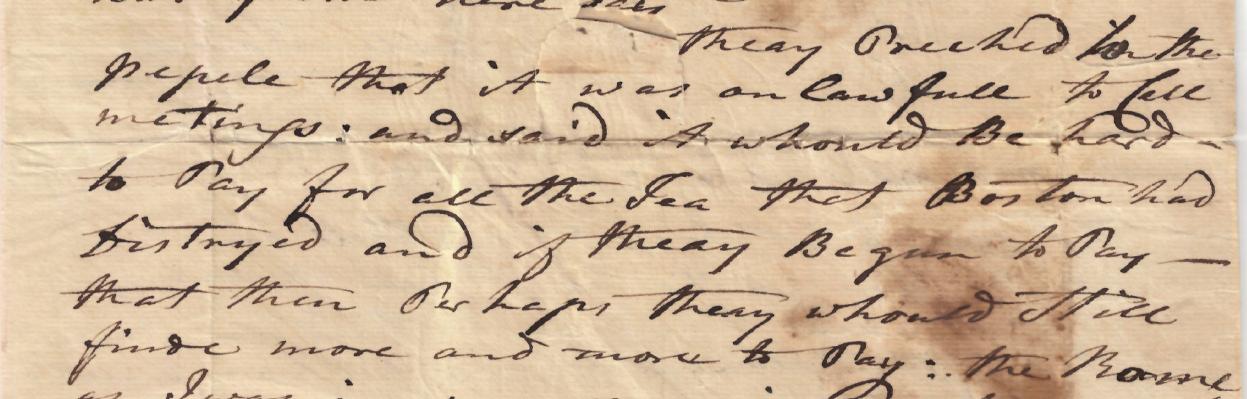 theay Preched to the
pepele that it was onlawfull to Call
metings: and said it whould Be hard-
to Pay for all the Tea that Boston had
distryed and if theay Begun to Pay —
that then Perhaps theay whould Still
finde more and more to Pay: the Rome
as I was